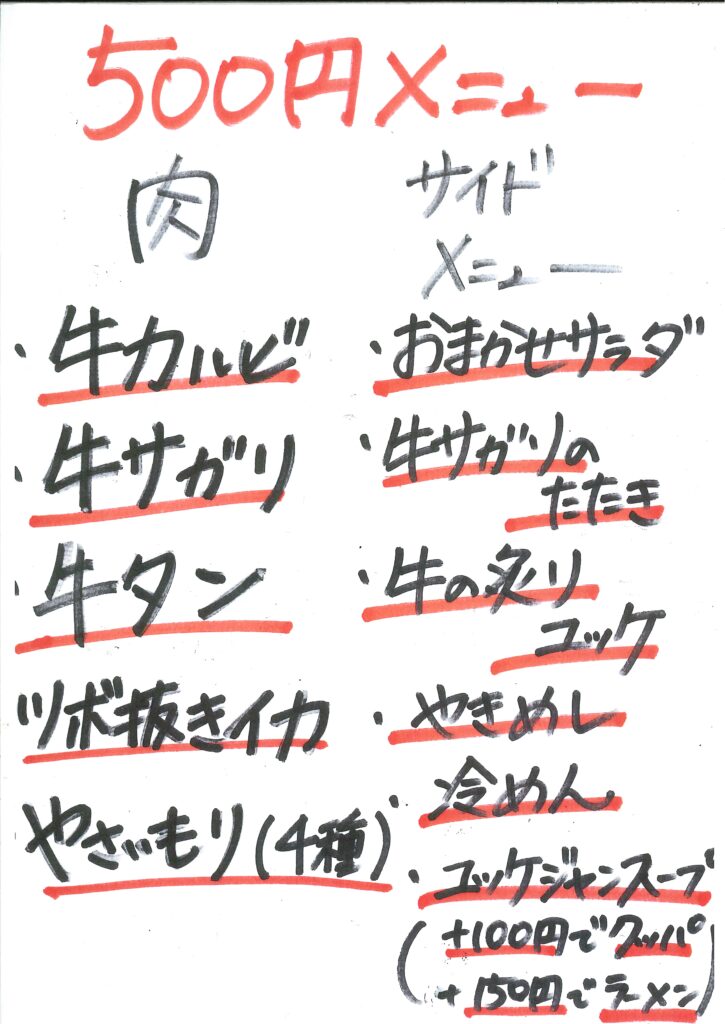 500円メニュー
肉
・牛カルビ
・牛サガリ
・牛タン
ツボ抜きイカ
やさいもり(4種)
サイド
メニュー
・おまかせサラダ
・牛サガリの
たたき
・牛の炙り
ユッケ
・やきめし
・冷めん
・ユッケジャンスープ
(+100円でクッパ
+150円でラーメン)